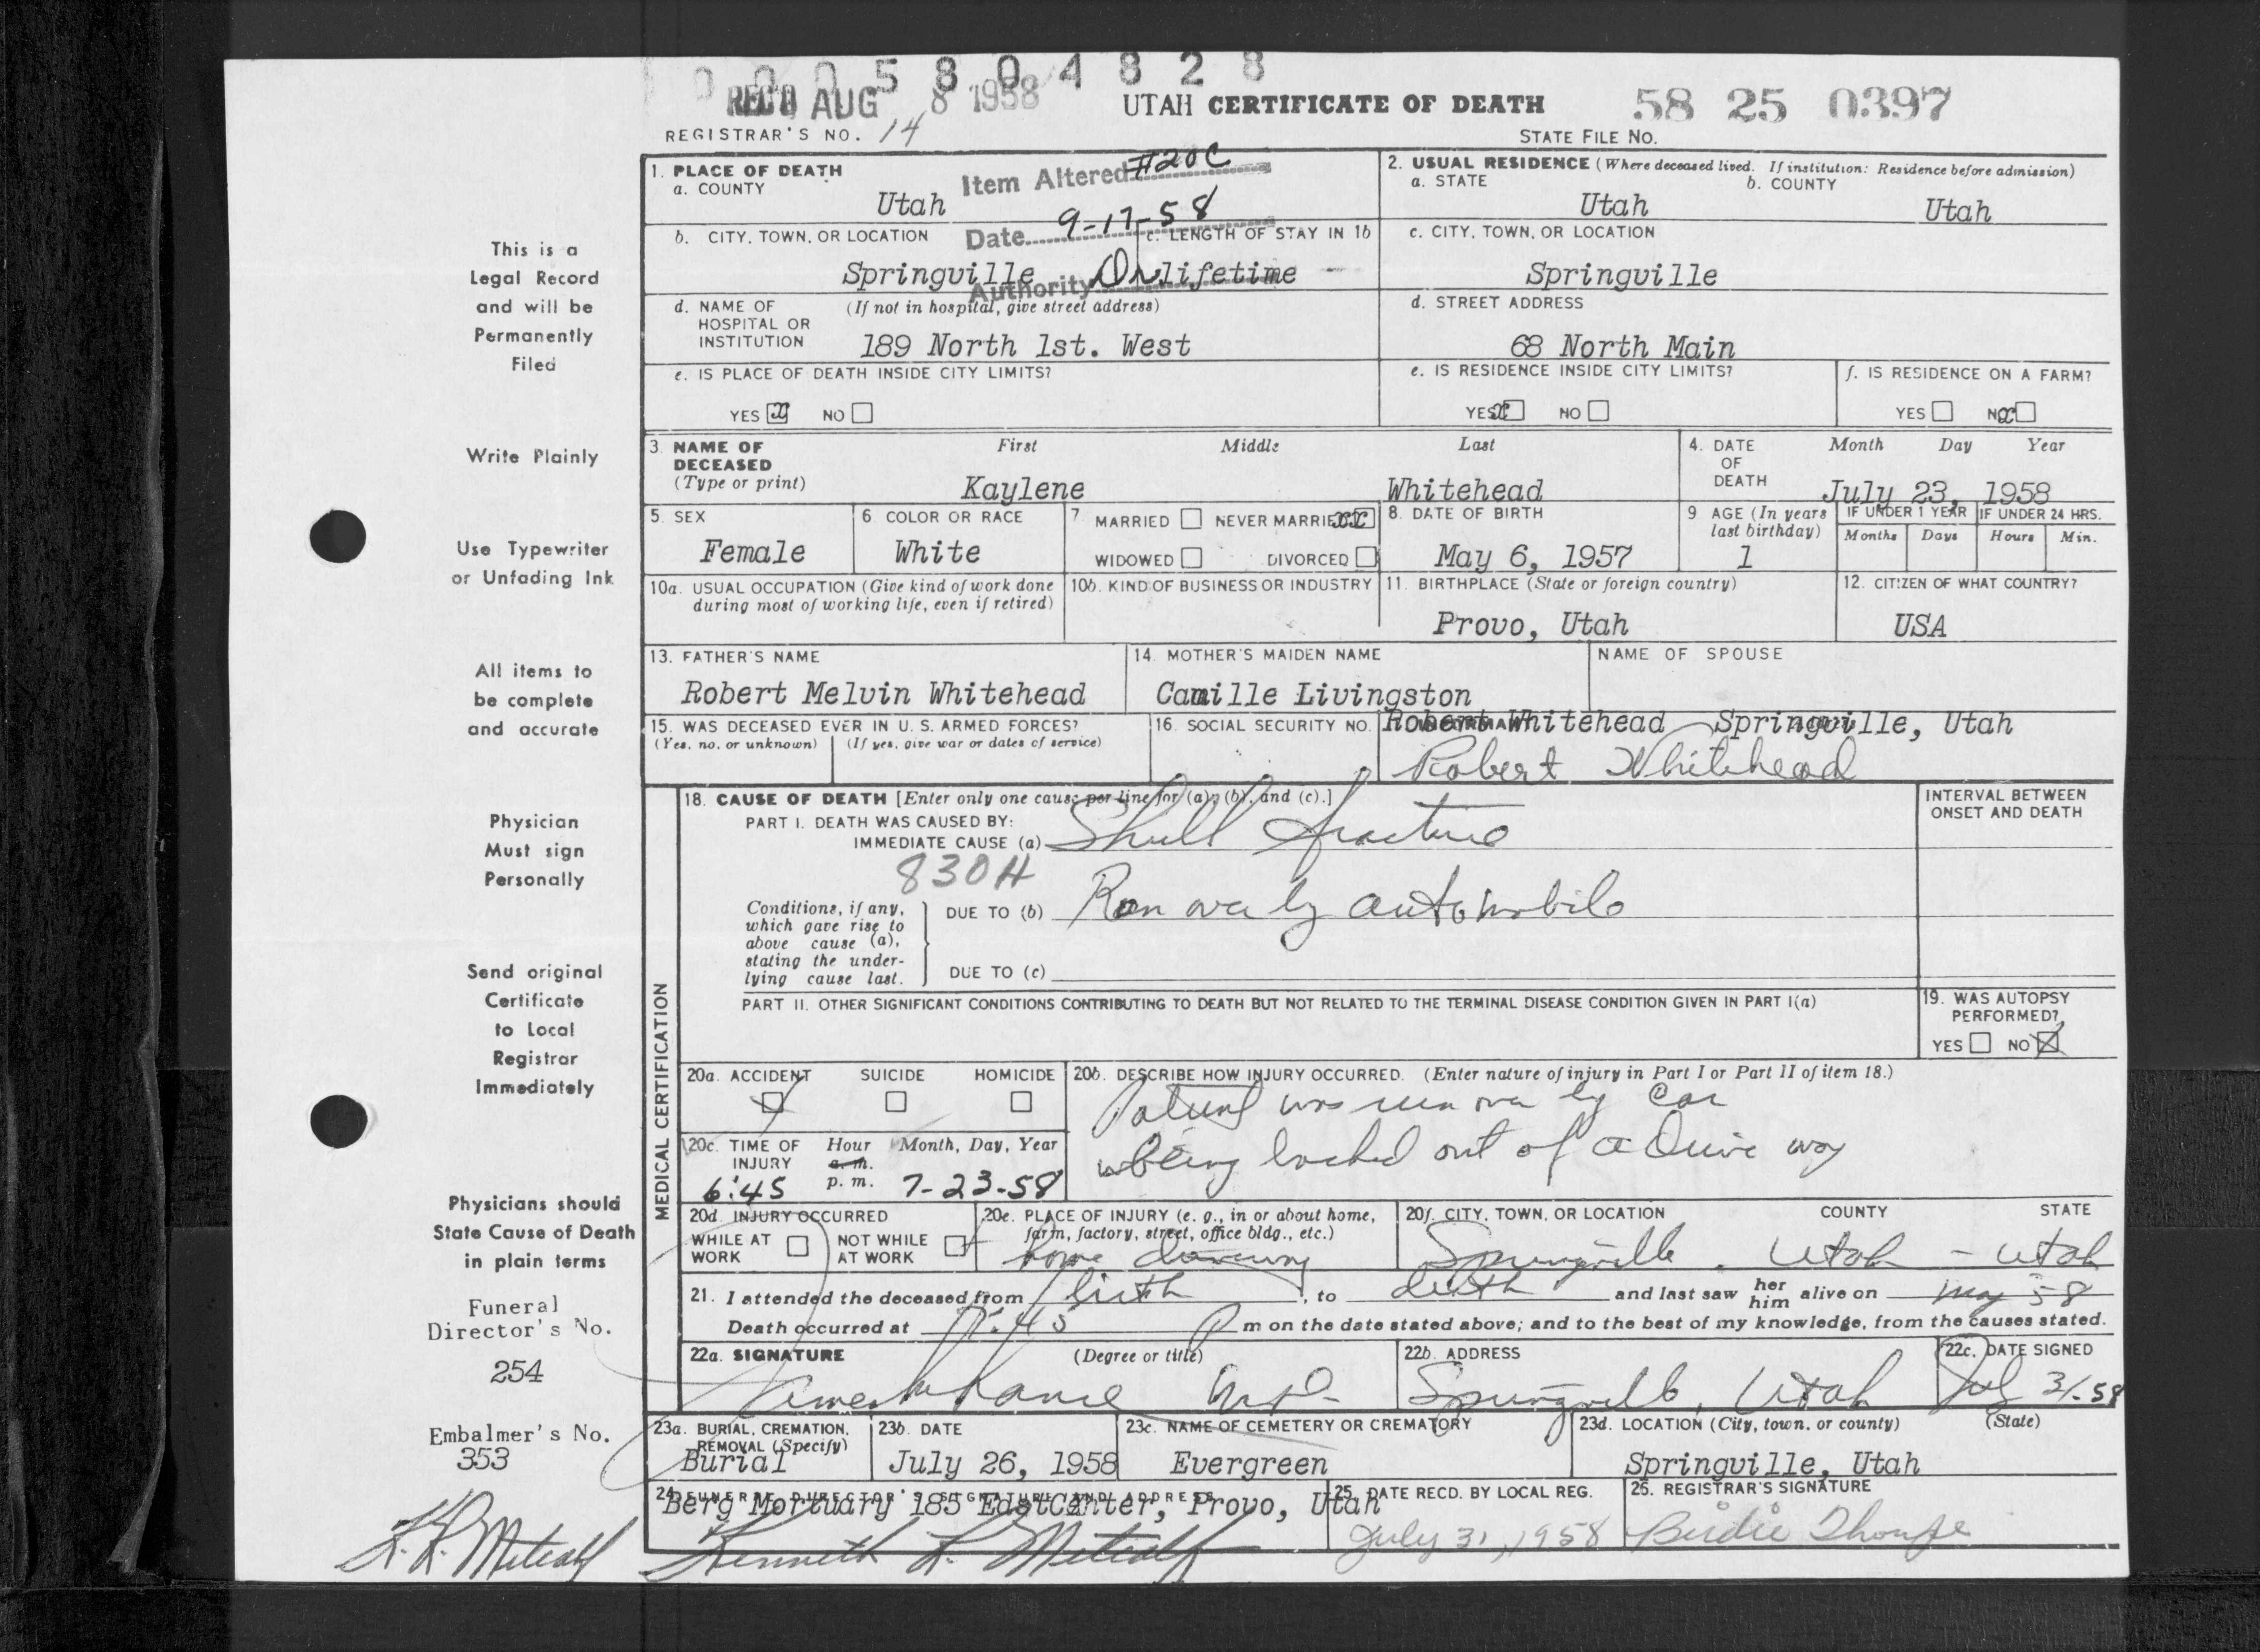 0 0 0 5 8 0 4 8 2 8
REC'D AUG 8 1958
UTAH CERTIFICATE OF DEATH
58 25 0397
REGISTRAR'S NO. 14
STATE FILE NO.
1. PLACE OF DEATH
a. COUNTY
Utah
Item Altered #20C
2. USUAL RESIDENCE (Where deceased lived. If institution: Residence before admission)
a. STATE
Utah
b. COUNTY
Utah
b. CITY, TOWN, OR LOCATION
Springville
Date 9-17-58
c. LENGTH OF STAY IN 1b
lifetime
Authority Dr
c. CITY, TOWN, OR LOCATION
Springville
d. NAME OF HOSPITAL OR INSTITUTION
(If not in hospital, give street address)
189 North 1st. West
d. STREET ADDRESS
68 North Main
e. IS PLACE OF DEATH INSIDE CITY LIMITS?
YES x NO
e. IS RESIDENCE INSIDE CITY LIMITS?
YES x NO
f. IS RESIDENCE ON A FARM?
YES NO x
3. NAME OF DECEASED (Type or print)
First Middle Last
Kaylene Whitehead
4. DATE OF DEATH
Month Day Year
July 23, 1958
5. SEX
Female
6. COLOR OR RACE
White
7. MARRIED NEVER MARRIED xx
WIDOWED DIVORCED
8. DATE OF BIRTH
May 6, 1957
9. AGE (In years last birthday)
1
IF UNDER 1 YEAR
Months Days
IF UNDER 24 HRS.
Hours Min.
10a. USUAL OCCUPATION (Give kind of work done during most of working life, even if retired)
10b. KIND OF BUSINESS OR INDUSTRY
11. BIRTHPLACE (State or foreign country)
Provo, Utah
12. CITIZEN OF WHAT COUNTRY?
USA
13. FATHER'S NAME
Robert Melvin Whitehead
14. MOTHER'S MAIDEN NAME
Camille Livingston
NAME OF SPOUSE
15. WAS DECEASED EVER IN U. S. ARMED FORCES?
(Yes, no, or unknown) (If yes, give war or dates of service)
16. SOCIAL SECURITY NO.
Robert Whitehead Springville, Utah
Robert Whitehead
MEDICAL CERTIFICATION
18. CAUSE OF DEATH [Enter only one cause per line for (a), (b), and (c).]
INTERVAL BETWEEN ONSET AND DEATH
PART I. DEATH WAS CAUSED BY:
IMMEDIATE CAUSE (a) Skull fracture
830H
Conditions, if any, which gave rise to above cause (a), stating the underlying cause last.
DUE TO (b) Ran over by automobile
DUE TO (c)
PART II. OTHER SIGNIFICANT CONDITIONS CONTRIBUTING TO DEATH BUT NOT RELATED TO THE TERMINAL DISEASE CONDITION GIVEN IN PART I(a)
19. WAS AUTOPSY PERFORMED?
YES NO X
20a. ACCIDENT SUICIDE HOMICIDE
20b. DESCRIBE HOW INJURY OCCURRED. (Enter nature of injury in Part I or Part II of item 18.)
Patient was run over by car
being backed out of a drive way
20c. TIME OF INJURY
Hour Month, Day, Year
a. m.
6:45 p. m. 7-23-58
20d. INJURY OCCURRED
WHILE AT WORK NOT WHILE AT WORK
20e. PLACE OF INJURY (e. g., in or about home, farm, factory, street, office bldg., etc.)
home driveway
20f. CITY, TOWN, OR LOCATION COUNTY STATE
Springville Utah - Utah
21. I attended the deceased from birth, to death and last saw her him alive on May 58
Death occurred at 7:45 P m on the date stated above; and to the best of my knowledge, from the causes stated.
22a. SIGNATURE (Degree or title)
M.D.
22b. ADDRESS
Springville, Utah
22c. DATE SIGNED
Jul 31-58
23a. BURIAL, CREMATION, REMOVAL (Specify)
Burial
23b. DATE
July 26, 1958
23c. NAME OF CEMETERY OR CREMATORY
Evergreen
23d. LOCATION (City, town, or county) (State)
Springville, Utah
24. FUNERAL DIRECTOR'S SIGNATURE AND ADDRESS
Berg Mortuary 185 East Center, Provo, Utah
Kenneth L. Metcalf
25. DATE RECD. BY LOCAL REG.
July 31, 1958
26. REGISTRAR'S SIGNATURE
Birdie Thorpe
This is a
Legal Record
and will be
Permanently
Filed
Write Plainly
Use Typewriter
or Unfading Ink
All items to
be complete
and accurate
Physician
Must sign
Personally
Send original
Certificate
to Local
Registrar
Immediately
Physicians should
State Cause of Death
in plain terms
Funeral
Director's No.
254
Embalmer's No.
353
K. L. Metcalf